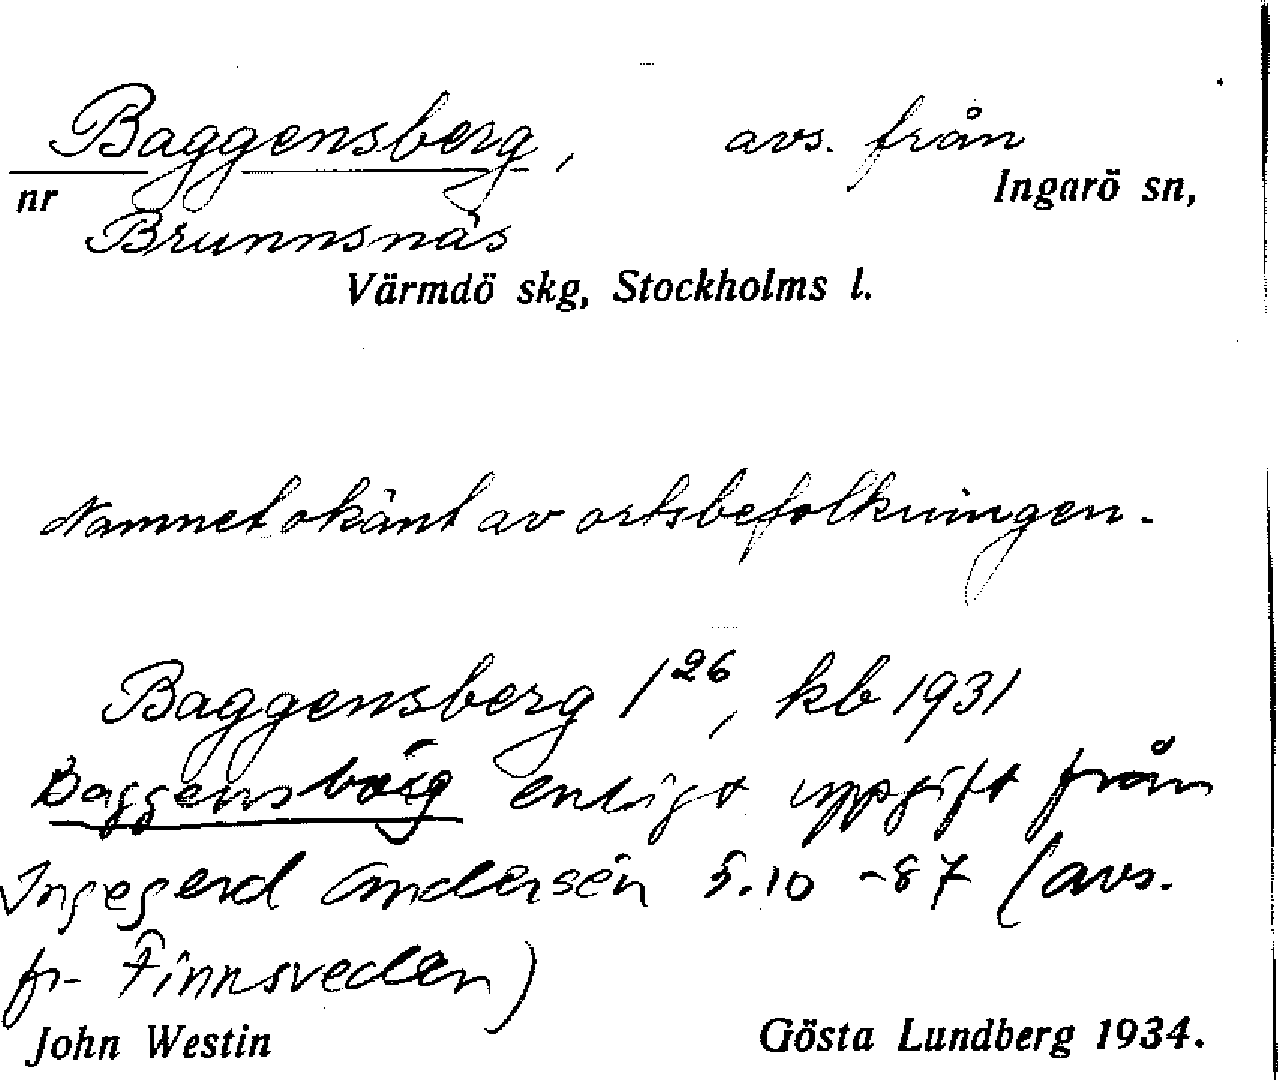 Baggensberg, avs. från
nr Ingarö sn,
Brunnsnäs
Värmdö skg, Stockholms l.
Namnet okänt av ortsbefolkningen.
Baggensberg 1²⁶, kb 1931
Baggensborg enligt uppgift från
Ingegerd Andersén 5.10 -87 (avs.
fr. Finnsveden)
John Westin Gösta Lundberg 1934.